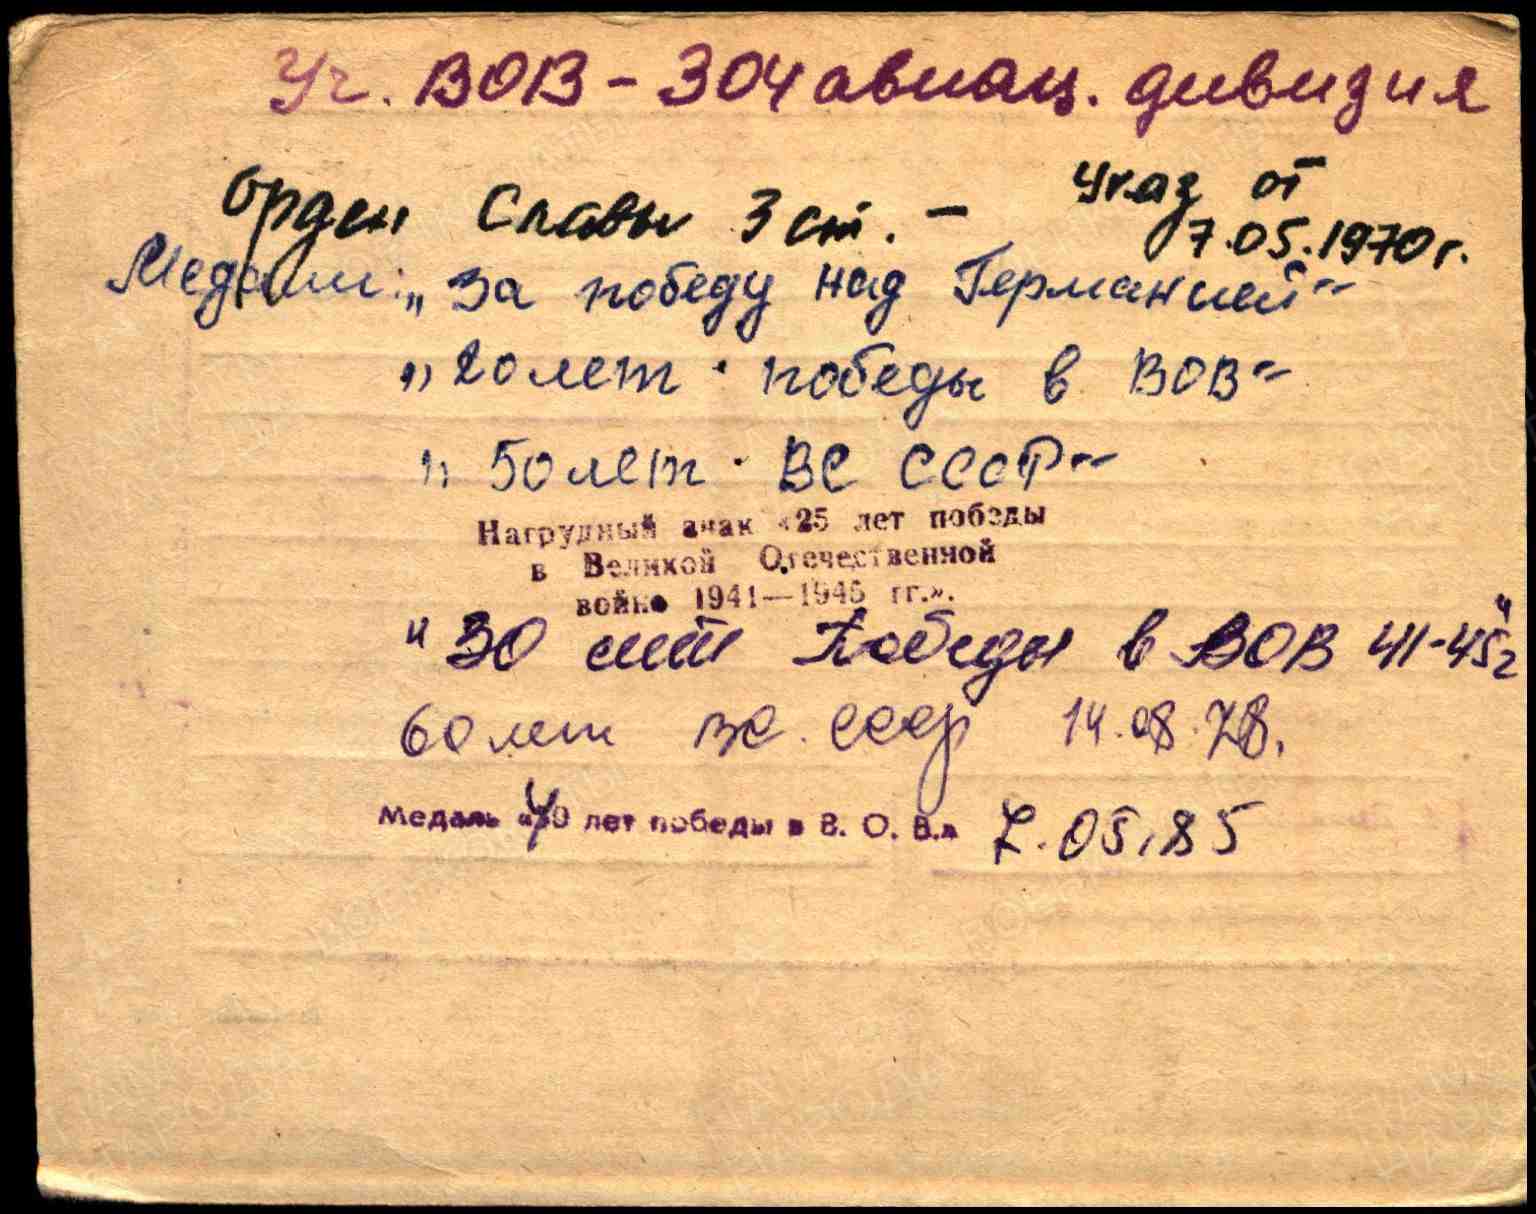 Уч. ВОВ - 304 авиац. дивизия
Орден Славы 3 ст. - Указ от
7.05.1970г.
Медали: „За победу над Германией"
„20 лет победы в ВОВ"
„50 лет ВС СССР"
Нагрудный знак «25 лет победы
в Великой Отечественной
войне 1941—1945 гг.».
"30 лет Победы в ВОВ 41-45г"
60 лет ВС СССР 14.08.78.
Медаль «40 лет победы в В. О. В.» 7.05.85